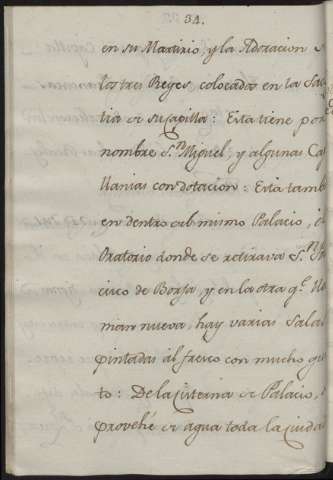 34.
en su Martirio, y la Adoracion
los tres Reyes colocadas en la Sac
tia de su capilla: Esta tiene por
nombre S.n Miguel, y algunas Cap
llanias con dotacion: Esta tamb
en dentro del mismo Palacio,
Oratorio donde se retirava S.n
cisco de Borja, y en la otra q.e
man nueva, hay varias Salas
pintadas al fresco con mucho gus
to: De la Cisterna de Palacio,
provehé de agua toda la Ciuda